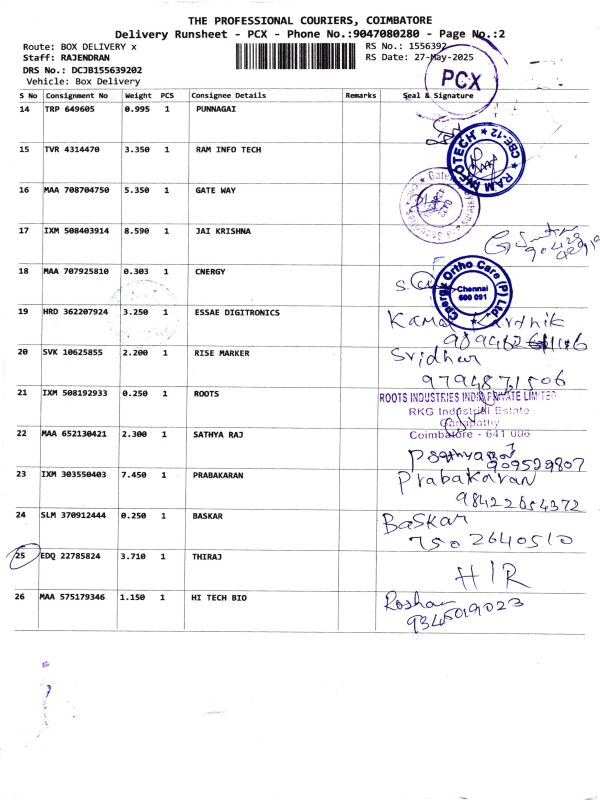 THE PROFESSIONAL COURIERS, COIMBATORE
Delivery Runsheet - PCX - Phone No.:9047080280 - Page No.:2
Route: BOX DELIVERY x
RS No.: 1556392
Staff: RAJENDRAN
RS Date: 27-May-2025
DRS No.: DCJB155639202
Vehicle: Box Delivery
PCX
S No Consignment No Weight PCS Consignee Details Remarks Seal & Signature
14 TRP 649605 0.995 1 PUNNAGAI
15 TVR 4314470 3.350 1 RAM INFO TECH
RAM INFOTECH ★ CBE-12 ★
16 MAA 708704750 5.350 1 GATE WAY
17 IXM 508403914 8.590 1 JAI KRISHNA
18 MAA 707925810 0.303 1 CNERGY
Ortho Care (P) Ltd.
Chennai
600 091
19 HRD 362207924 3.250 1 ESSAE DIGITRONICS
20 SVK 10625855 2.200 1 RISE MARKER Sridhar
9794871506
21 IXM 508192933 0.250 1 ROOTS
ROOTS INDUSTRIES INDIA PRIVATE LIMITED
RKG Industrial Estate
Ganapathy
Coimbatore - 641 006
22 MAA 652130421 2.300 1 SATHYA RAJ
23 IXM 303550403 7.450 1 PRABAKARAN Prabakaran
98422654372
24 SLM 370912444 0.250 1 BASKAR Baskar
7502640510
25 EDQ 22785824 3.710 1 THIRAJ H/R
26 MAA 575179346 1.150 1 HI TECH BIO Roshan
9345019023